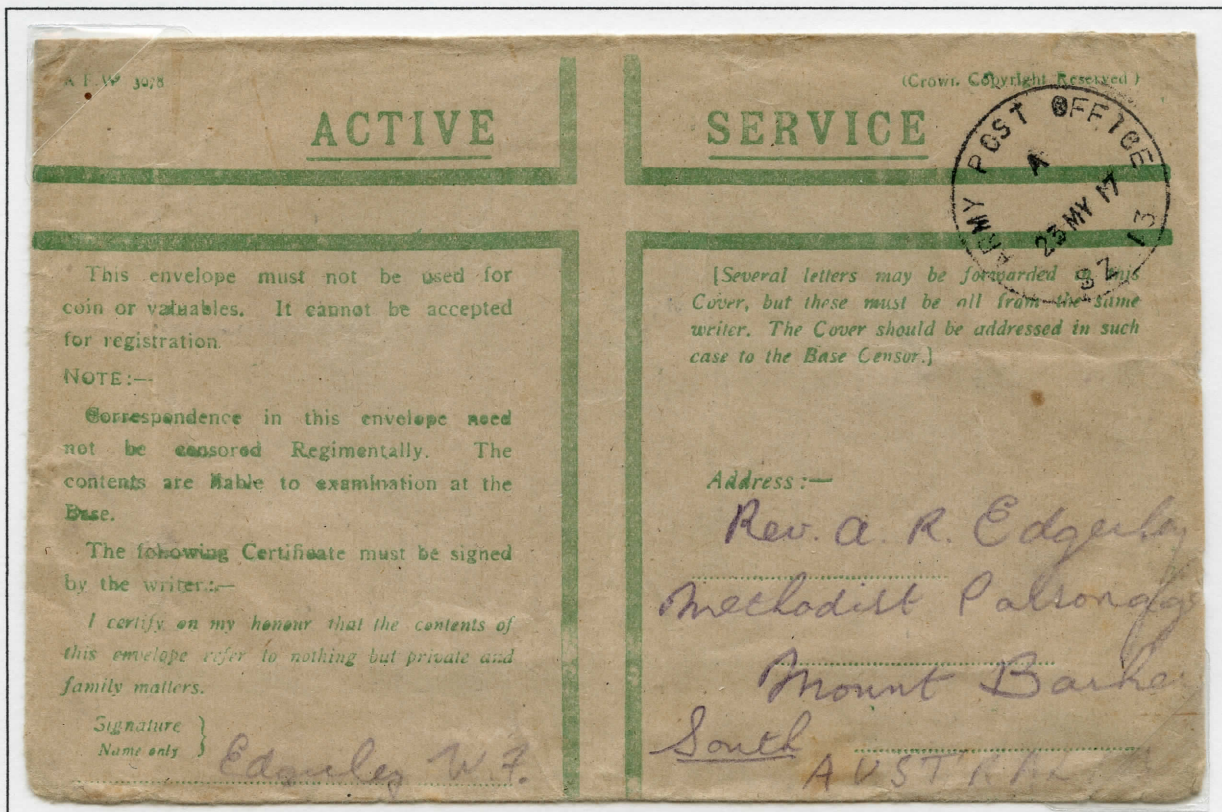 A.F.W. 3078
(Crown Copyright Reserved)
ACTIVE SERVICE
ARMY POST OFFICE
A
23 MY 17
SZ 13
This envelope must not be used for
coin or valuables. It cannot be accepted
for registration.
NOTE:—
Correspondence in this envelope need
not be censored Regimentally. The
contents are liable to examination at the
Base.
The following Certificate must be signed
by the writer:—
I certify on my honour that the contents of
this envelope refer to nothing but private and
family matters.
Signature }
Name only }
Edgerley W. F.
[Several letters may be forwarded in this
Cover, but these must be all from the same
writer. The Cover should be addressed in such
case to the Base Censor.]
Address:—
Rev. A. R. Edgerley
Methodist Parsonage
Mount Barker
South
AUSTRAL